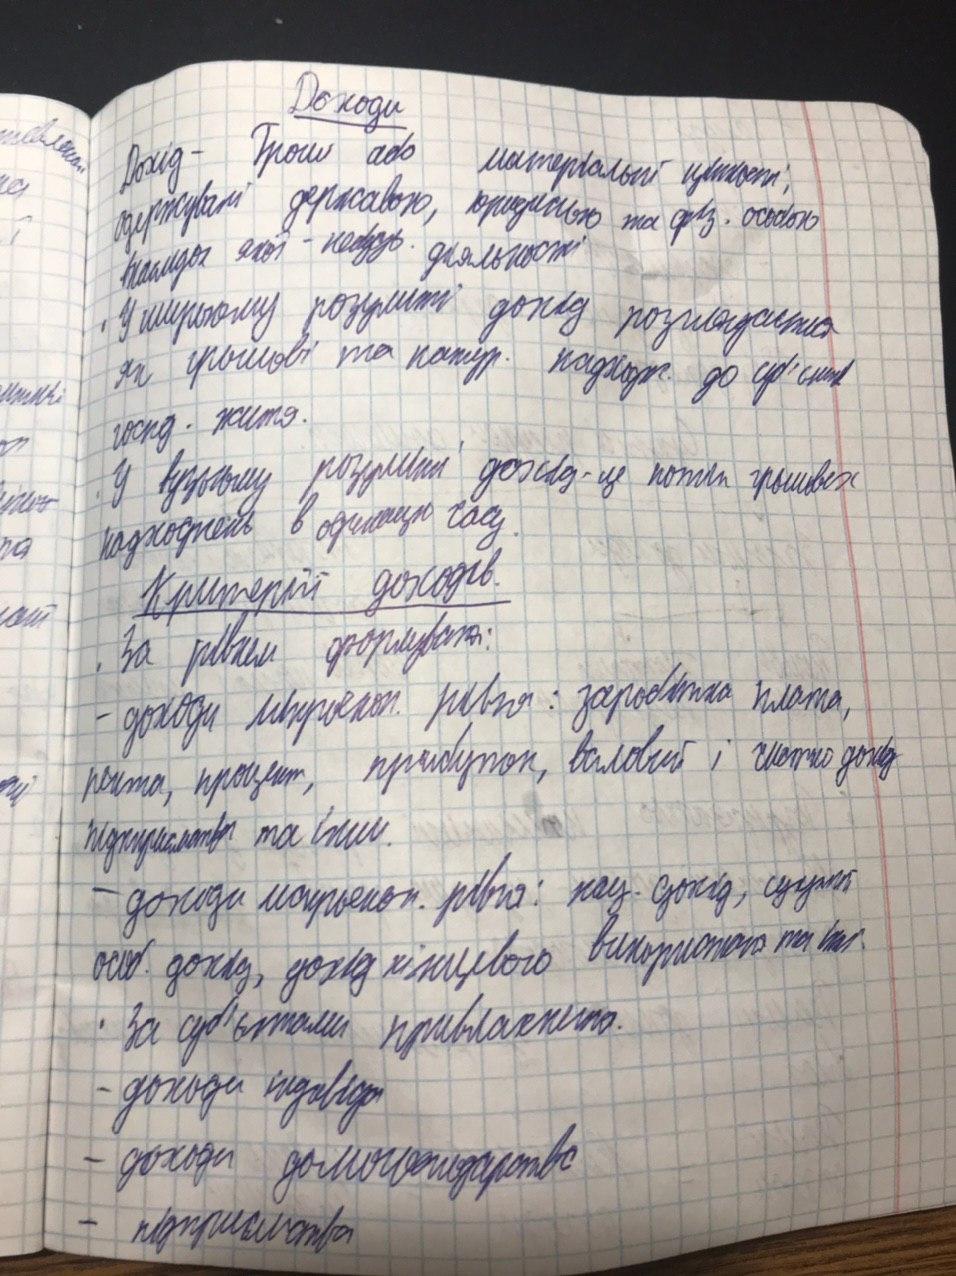 Доходи
Дохід - Гроші або матеріальні цінності,
одержувані державою, юридичною та фіз. особою
внаслідок якої-небудь. діяльності
· У широкому розумінні дохід розглядається
як грошові та натур. надходж. до суб'єктів
госпд. життя.
· У вузькому розумінні дохід - це потік грошових
надходжень в одиницю часу.
Критерії доходів.
· За рівнем формування:
- доходи мікроекон. рівня: заробітна плата,
рента, процент, прибуток, валовий і чистий дохід
підприємства та інш.
- доходи макроекон. рівня: нац. дохід,
особ. дохід, дохід кінцевого використання та інш.
· За суб'єктами привласнення.
- доходи
- доходи домогосподарства
- підприємства